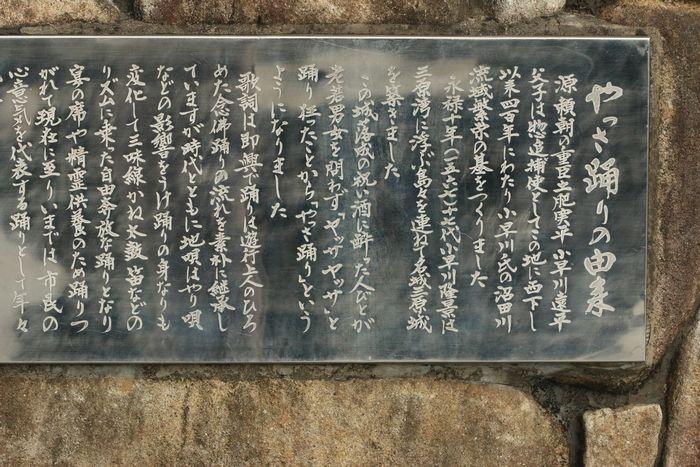 やっさ踊りの由来
源頼朝の重臣土肥実平 小早川遠平
父子は惣追捕使としてこの地に西下し
以来四百年にわたり小早川氏の沼田川
流域繁栄の基をつくりました
永禄十年(一五六七)七代小早川隆景は
三原湾に浮ぶ島々を連ねて名城三原城
を築きました
この城落成の祝い酒に酔った人びとが
老若男女を問わず「ヤッサヤッサ」と
踊り狂たことから「やっさ踊り」という
ようになりました
歌詞は即興で踊は遊行上人のひろ
めた念仏踊りの流れを素朴に継承し
ていますが時代とともに地唄はやり唄
などの影響をうけ踊りの身なりも
変化して三味線かね太鼓笛などの
リズムに乗た自由奔放な踊りとなり
宴の席や精霊供養のため踊りつ
がれて現在に至りいまでは市民の
心意気を代表する踊りとして年々